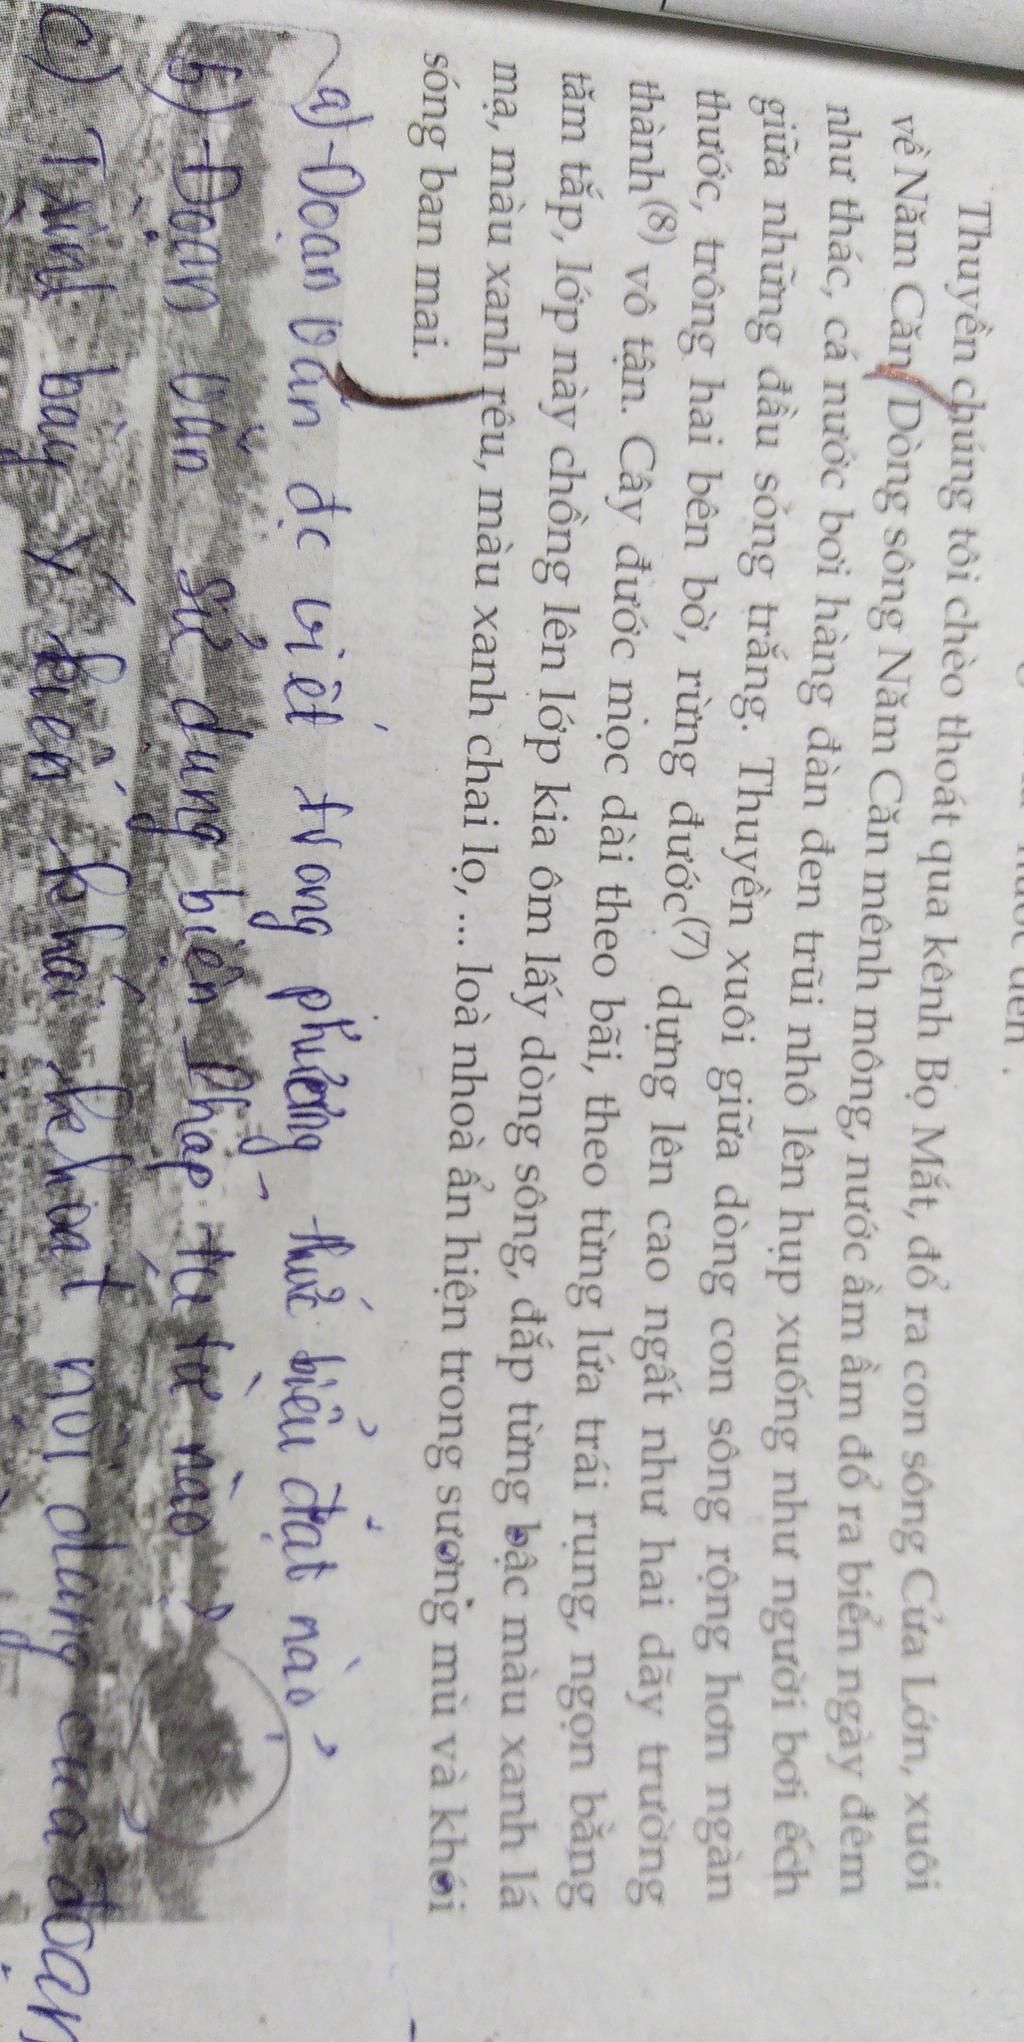 Thuyền chúng tôi chèo thoát qua kênh Bọ Mắt, đổ ra con sông Cửa Lớn, xuôi
về Năm Căn. Dòng sông Năm Căn mênh mông, nước ầm ầm đổ ra biển ngày đêm
như thác, cá nước bơi hàng đàn đen trũi nhô lên hụp xuống như người bơi ếch
giữa những đầu sóng trắng. Thuyền xuôi giữa dòng con sông rộng hơn ngàn
thước, trông hai bên bờ, rừng đước(7) dựng lên cao ngất như hai dãy trường
thành(8) vô tận. Cây đước mọc dài theo bãi, theo từng lứa trái rụng, ngọn bằng
tăm tắp, lớp này chồng lên lớp kia ôm lấy dòng sông, đắp từng bậc màu xanh lá
mạ, màu xanh rêu, màu xanh chai lọ, ... loà nhoà ẩn hiện trong sương mù và khói
sóng ban mai.
a) Đoạn văn đc viết trong phương thức biểu đạt nào?
b) Đoạn văn sử dụng biện pháp tu từ nào?
c) Trình bày ý kiến khái khoát nội dung của đoạn